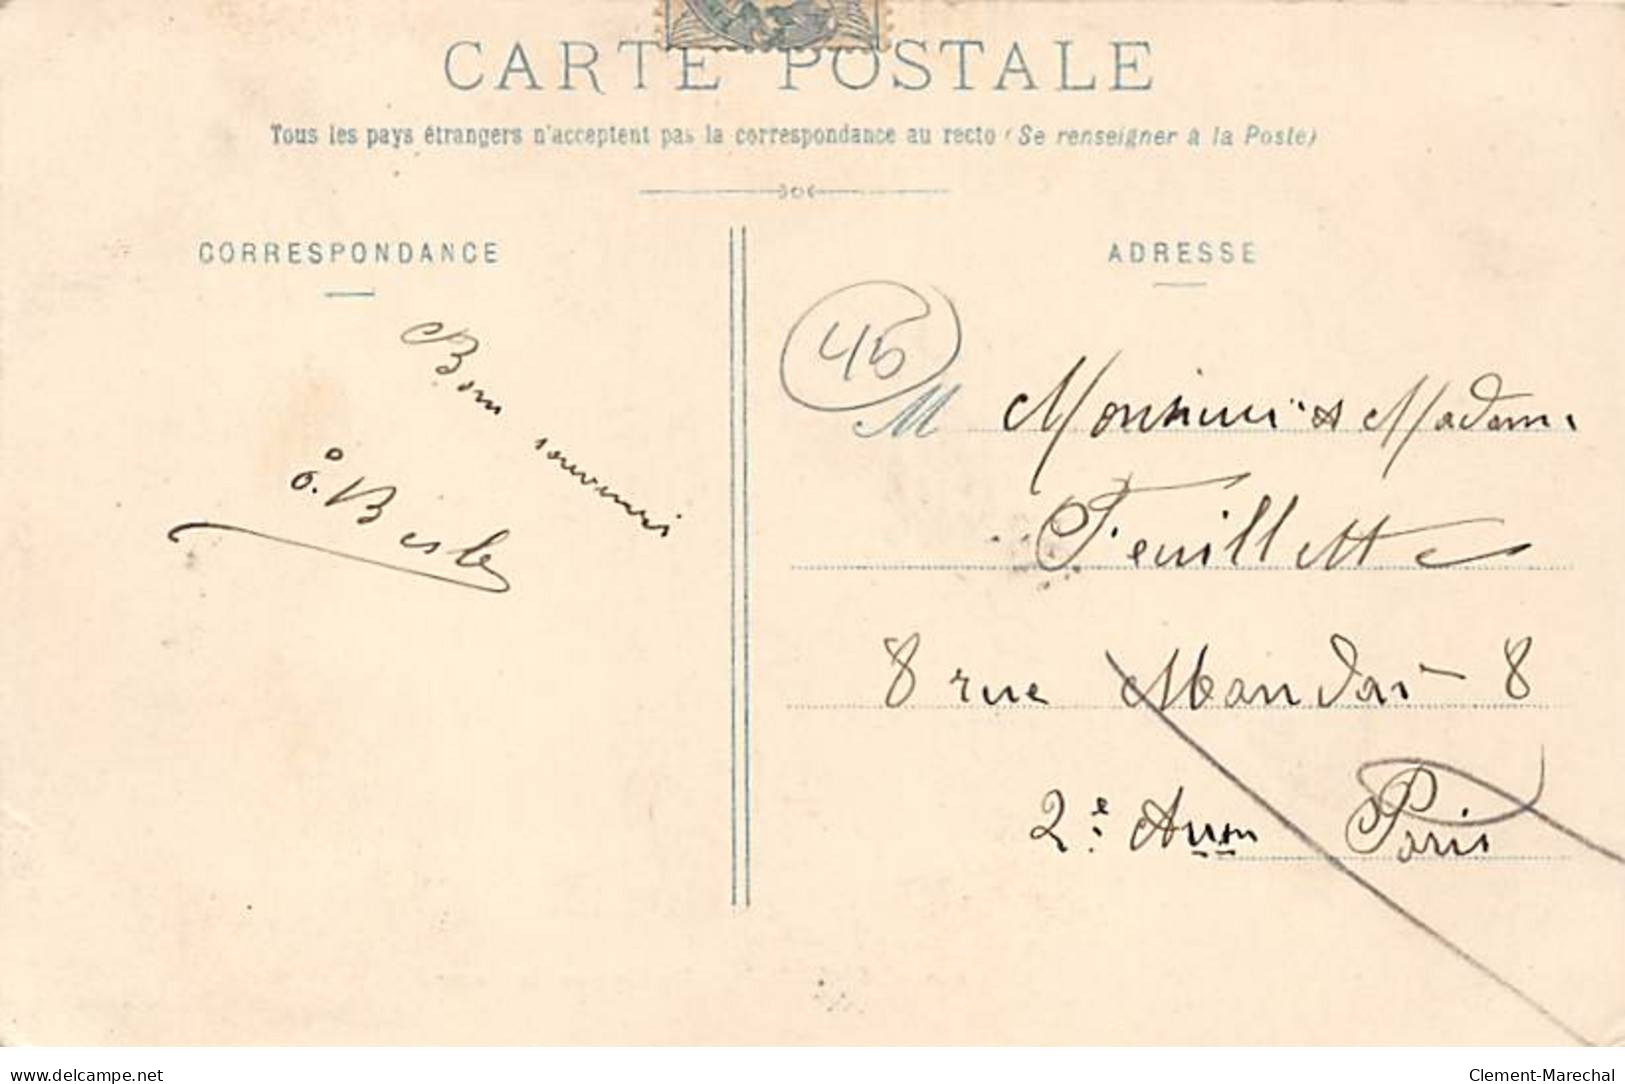 CARTE POSTALE
Tous les pays étrangers n'acceptent pas la correspondance au recto (Se renseigner à la Poste)
CORRESPONDANCE
Bons
souvenirs
ADRESSE
45
M Monsieur et Madame
Feuillette
8 rue Mandar 8
2e Arron Paris
delcampe.net
Clement-Marechal